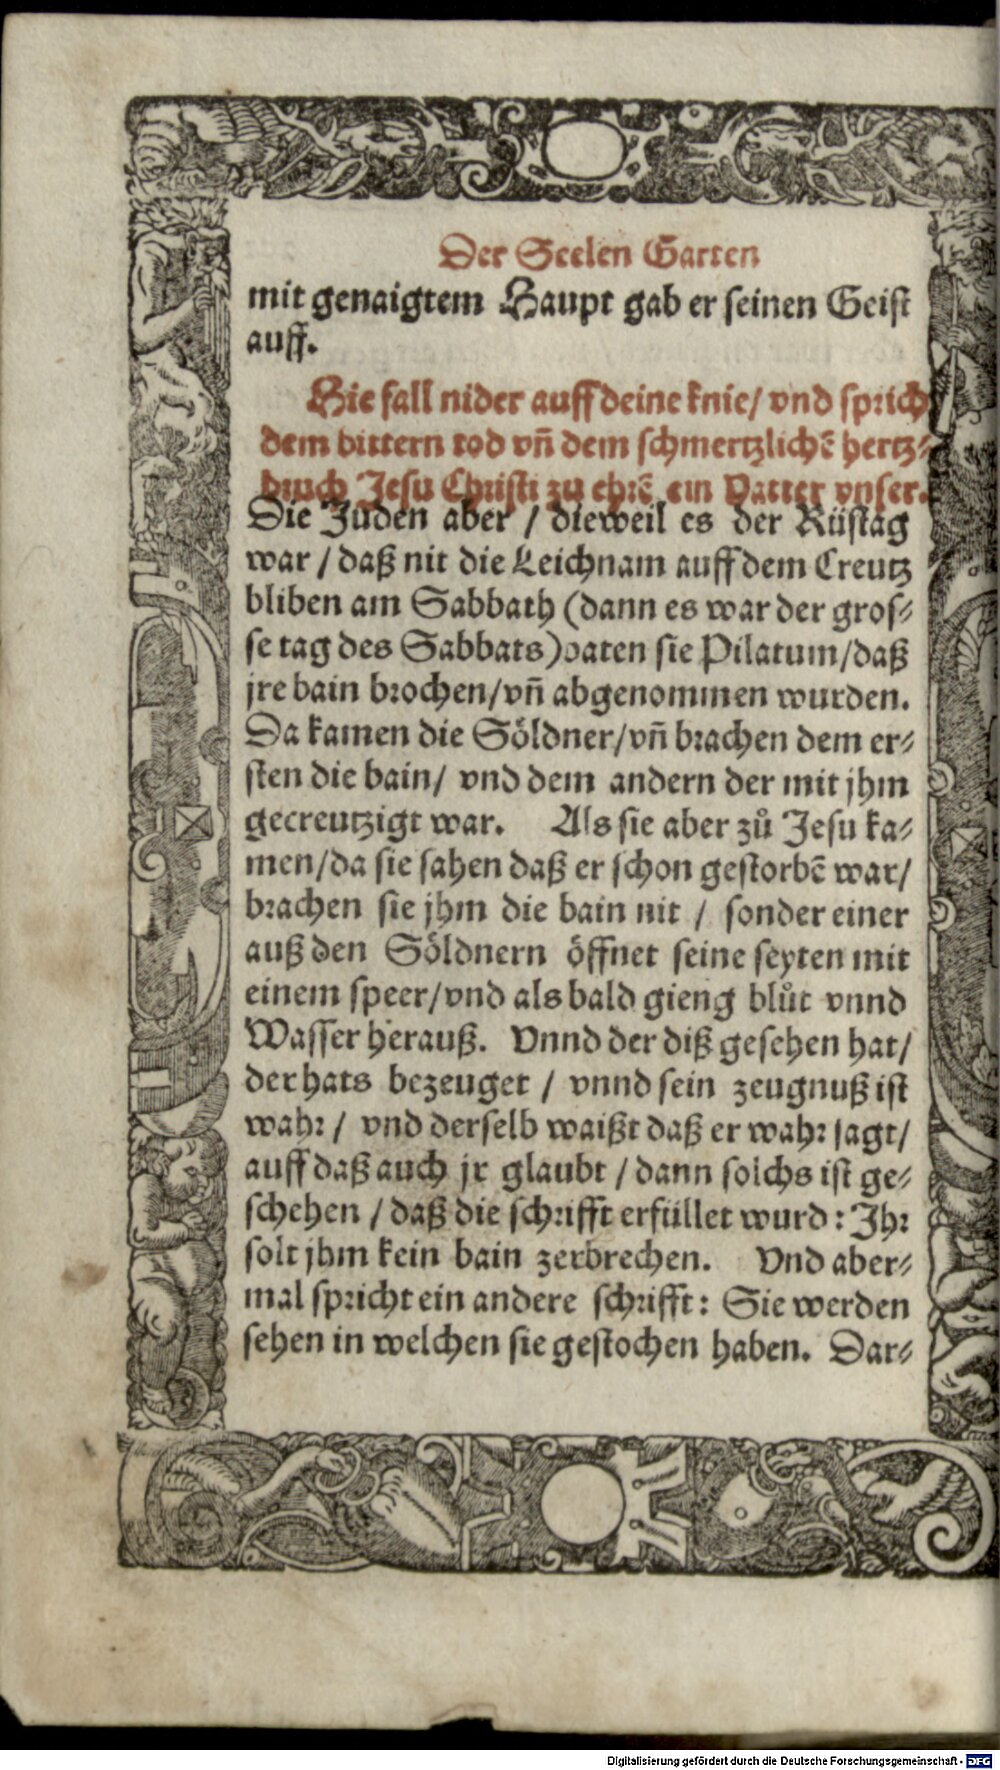 Der Seelen Garten
mit genaigtem Haupt gab er seinen Geist
auff.
Hie fall nider auff deine knie/ vnd sprich
dem bittern tod vñ dem schmertzlichẽ hertz⸗
bruch Jesu Christi zu ehrẽ ein Vatter vnser.
Die Juden aber / dieweil es der Rüstag
war / daß nit die Leichnam auff dem Creutz
bliben am Sabbath (dann es war der gros⸗
se tag des Sabbats) baten sie Pilatum/daß
jre bain brochen/vñ abgenommen wurden.
Da kamen die Söldner/vñ brachen dem er⸗
sten die bain/ vnd dem andern der mit jhm
gecreutzigt war. Als sie aber zů Jesu ka⸗
men/da sie sahen daß er schon gestorbẽ war/
brachen sie jhm die bain nit / sonder einer
auß den Söldnern öffnet seine seyten mit
einem speer/vnd als bald gieng blůt vnnd
Wasser herauß. Vnnd der diß gesehen hat/
der hats bezeuget / vnnd sein zeugnuß ist
wahr / vnd derselb waißt daß er wahr sagt/
auff daß auch jr glaubt / dann solchs ist ge⸗
schehen / daß die schrifft erfüllet wurd: Ihr
solt jhm kein bain zerbrechen. Vnd aber⸗
mal spricht ein andere schrifft: Sie werden
sehen in welchen sie gestochen haben. Dar⸗
Digitalisierung gefördert durch die Deutsche Forschungsgemeinschaft - DFG